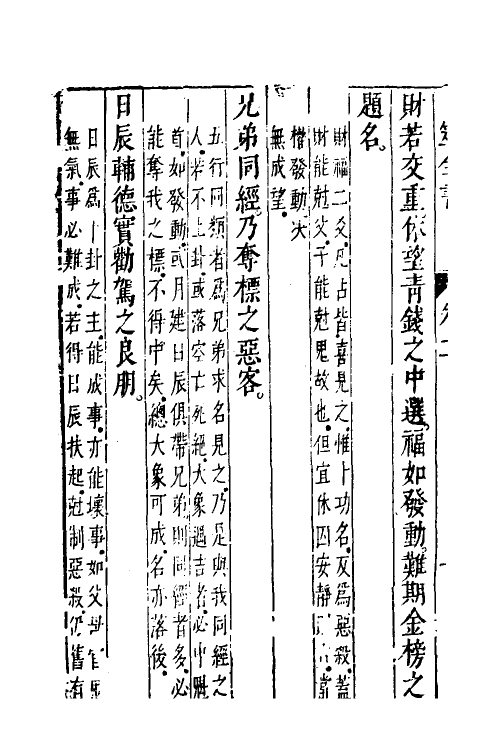 財若交重休望青錢之中選福如發動難期金榜之
題名
財福二爻凡占皆喜見之惟卜功名反爲惡殺蓋
財能尅父子能尅鬼故也但宜休囚安靜
發動大
無成望
兄弟同經乃奪標之惡客
五行同類者爲兄弟求名見之乃是與我同經之
人若不上卦或落空亡死絕大象遇吉者必中魁
首如發動或月建日辰俱帶兄弟則同經者多必
能奪我之標不得中矣總大象可成名亦落後
日辰輔德實勸駕之良朋
日辰爲卜卦之主能成事亦能壞事如父母官
無氣事必難成若得日辰扶起尅制惡殺仍舊有